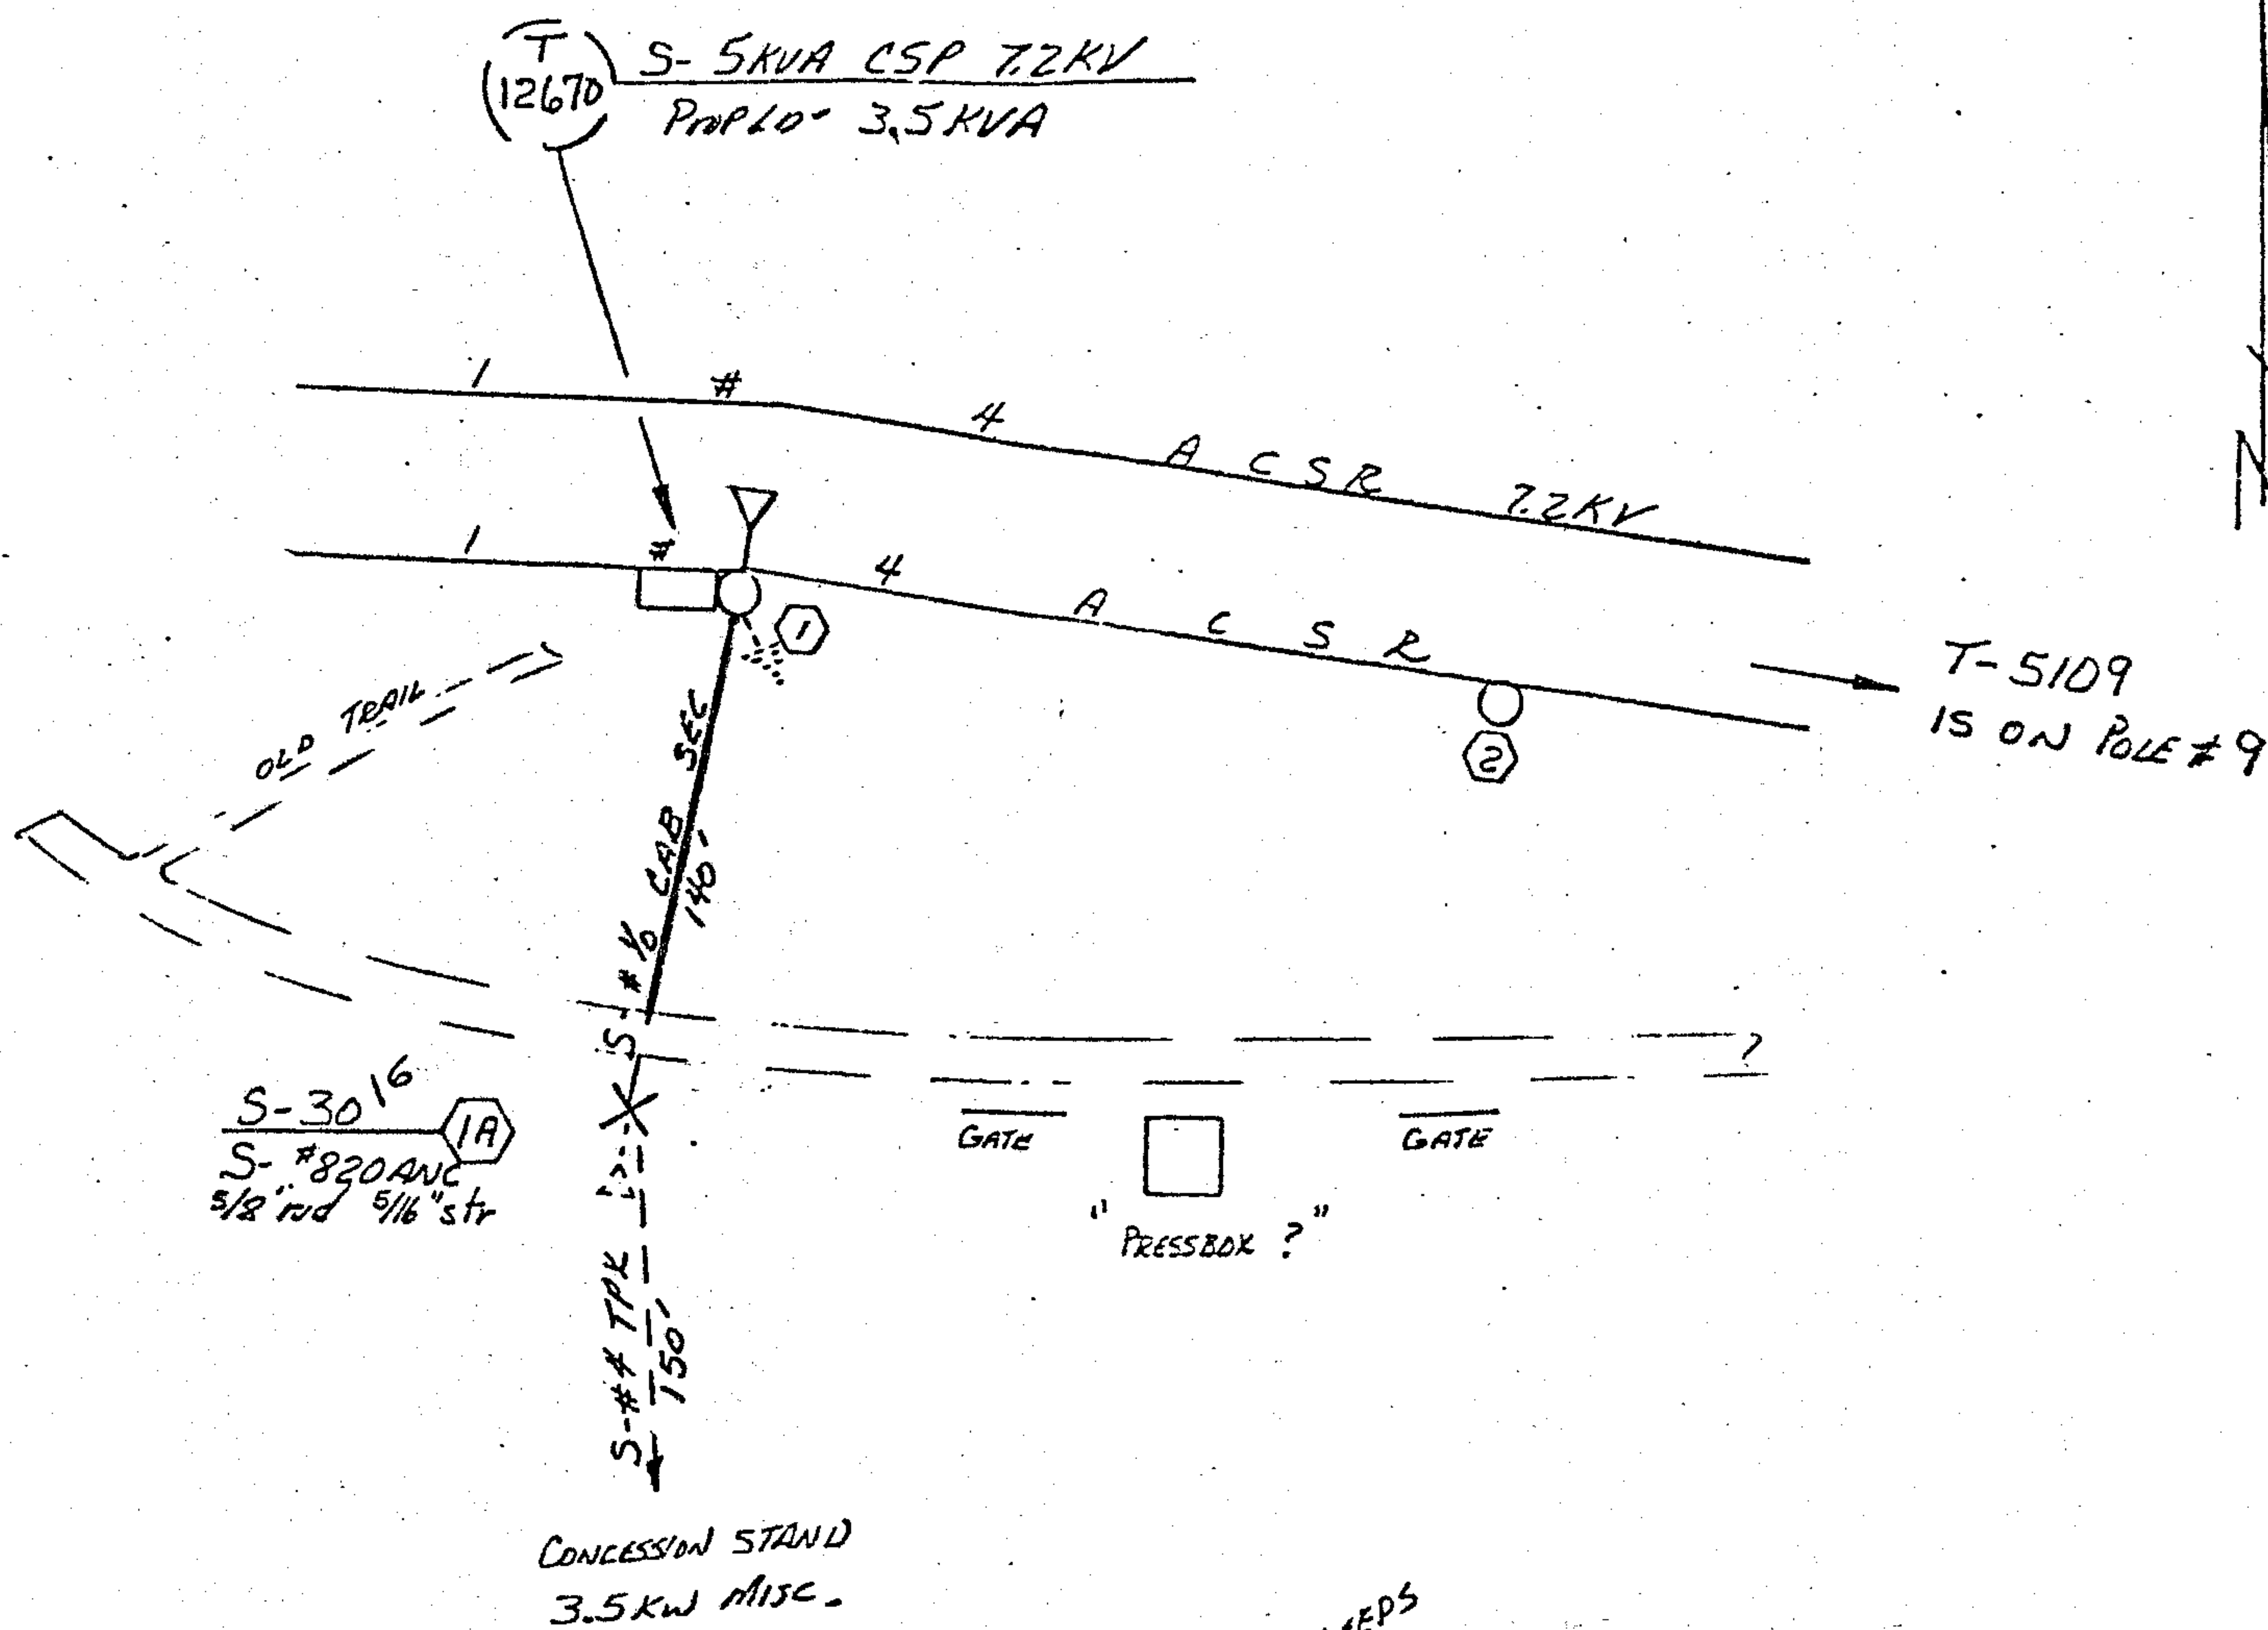 T
12670
S- 5KVA CSP 7.2KV
PROP LD- 3.5KVA
1 # 4 ACSR 7.2KV
1 # 4 ACSR
1
2
T-5109
IS ON POLE #9
N
OLD TRAIL
S-#1/0 CAB SEC
140'
S-30 16
1A
S- #820 ANC
5/8" rod 5/16" str
?
GATE
GATE
"PRESSBOX ?"
S-#4 TPX
150'
CONCESSION STAND
3.5 KW MISC.